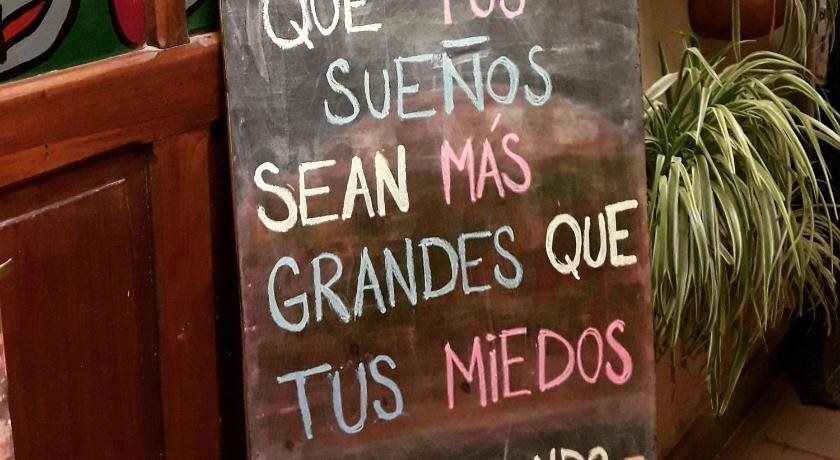 QUE TUS
SUEÑOS
SEAN MÁS
GRANDES QUE
TUS MiEDOS